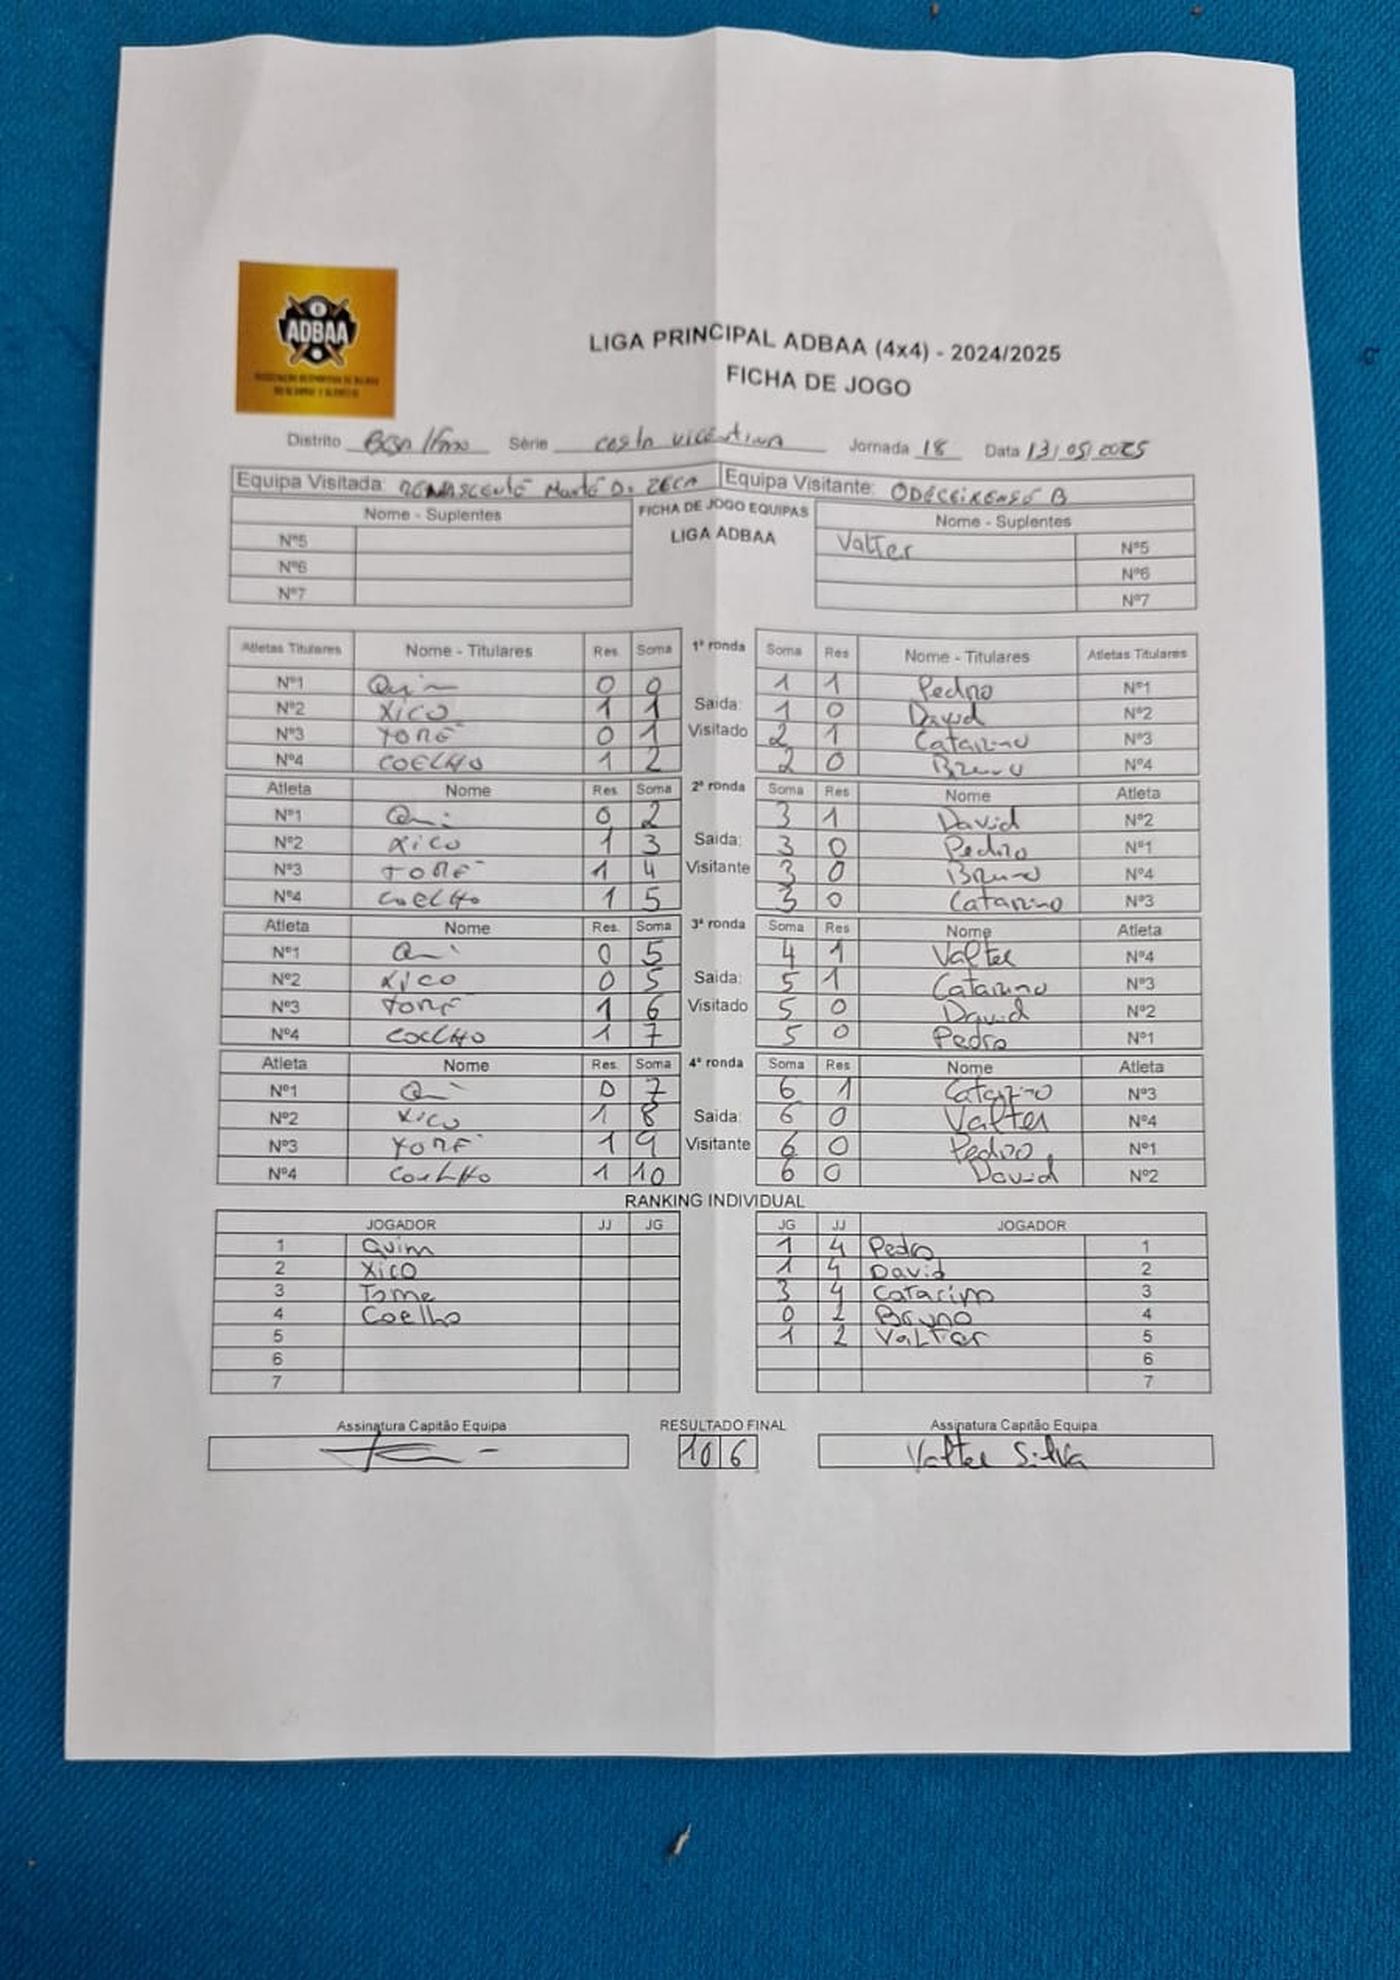 ADBAA
LIGA PRINCIPAL ADBAA (4x4) - 2024/2025
FICHA DE JOGO
Distrito Série costa vicentina Jornada 18 Data 13/05/2025
Equipa Visitada: D. ZECA Equipa Visitante: ODECEIXENSE B
Nome - Suplentes FICHA DE JOGO EQUIPAS Nome - Suplentes
LIGA ADBAA
Nº5 Valter Nº5
Nº6 Nº6
Nº7 Nº7
Atletas Titulares Nome - Titulares Res. Soma 1ª ronda Soma Res Nome - Titulares Atletas Titulares
Nº1 Quim 0 0 1 1 Pedro Nº1
Nº2 XICO 1 1 Saida: 1 0 David Nº2
Nº3 TOMÉ 0 1 Visitado 2 1 Catarino Nº3
Nº4 COELHO 1 2 2 0 Bruno Nº4
Atleta Nome Res. Soma 2ª ronda Soma Res Nome Atleta
Nº1 Qui 0 2 3 1 David Nº2
Nº2 XICO 1 3 Saida: 3 0 Pedro Nº1
Nº3 TOMÉ 1 4 Visitante 3 0 Bruno Nº4
Nº4 COELHO 1 5 3 0 Catarino Nº3
Atleta Nome Res. Soma 3ª ronda Soma Res Nome Atleta
Nº1 Qui 0 5 4 1 Valter Nº4
Nº2 XICO 0 5 Saida: 5 1 Catarino Nº3
Nº3 TOMÉ 1 6 Visitado 5 0 David Nº2
Nº4 COELHO 1 7 5 0 Pedro Nº1
Atleta Nome Res. Soma 4ª ronda Soma Res Nome Atleta
Nº1 Qui 0 7 6 1 Catarino Nº3
Nº2 XICO 1 8 Saida: 6 0 Valter Nº4
Nº3 TOMÉ 1 9 Visitante 6 0 Pedro Nº1
Nº4 COELHO 1 10 6 0 David Nº2
RANKING INDIVIDUAL
JOGADOR JJ JG JG JJ JOGADOR
1 Quim 1 4 Pedro 1
2 XICO 1 4 David 2
3 Tome 3 4 Catarino 3
4 Coelho 0 2 Bruno 4
5 1 2 VALTER 5
6 6
7 7
Assinatura Capitão Equipa RESULTADO FINAL Assinatura Capitão Equipa
10 6 Valter Silva